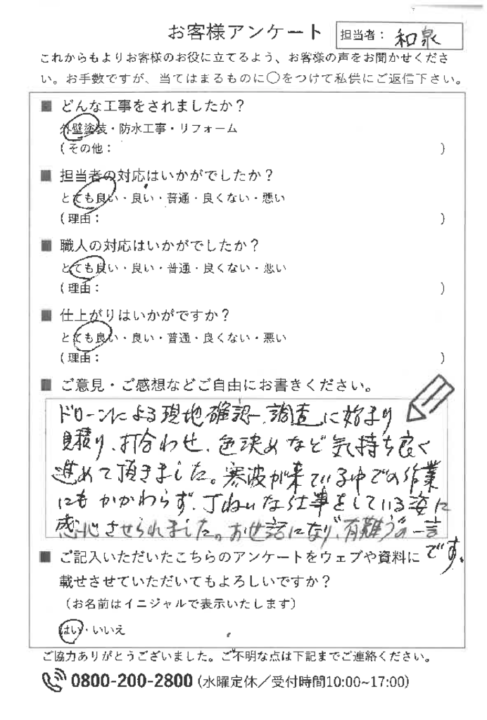 お客様アンケート
担当者： 和泉
これからもよりお客様のお役に立てるよう、お客様の声をお聞かせくださ
い。お手数ですが、当てはまるものに○をつけて私供にご返信下さい。
■ どんな工事をされましたか？
外壁塗装・防水工事・リフォーム
（その他：　　）
■ 担当者の対応はいかがでしたか？
とても良い・良い・普通・良くない・悪い
（理由：　　）
■ 職人の対応はいかがでしたか？
とても良い・良い・普通・良くない・悪い
（理由：　　）
■ 仕上がりはいかがですか？
とても良い・良い・普通・良くない・悪い
（理由：　　）
■ ご意見・ご感想などご自由にお書きください。
ドローンによる現地確認、調査に始まり
見積り、打合わせ、色決めなど気持ち良く
進めて頂きました。寒波が来ている中での作業
にもかかわらず、丁ねいな仕事をしている姿に
感心させられました。お世話になり"有難う"の一言
です。
■ ご記入いただいたこちらのアンケートをウェブや資料に
載せさせていただいてもよろしいですか？
（お名前はイニシャルで表示いたします）
はい・いいえ
ご協力ありがとうございました。ご不明な点は下記までご連絡ください。
0800-200-2800（水曜定休／受付時間10:00~17:00）